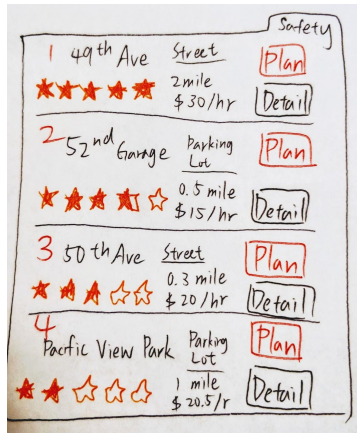 Safety
1 49th Ave Street Plan
2 mile
$30/hr Detail
2 52nd Garage Parking Lot Plan
0.5 mile
$15/hr Detail
3 50th Ave Street Plan
0.3 mile
$20/hr Detail
4 Pacific View Park Parking Lot Plan
1 mile
$20.5/r Detail